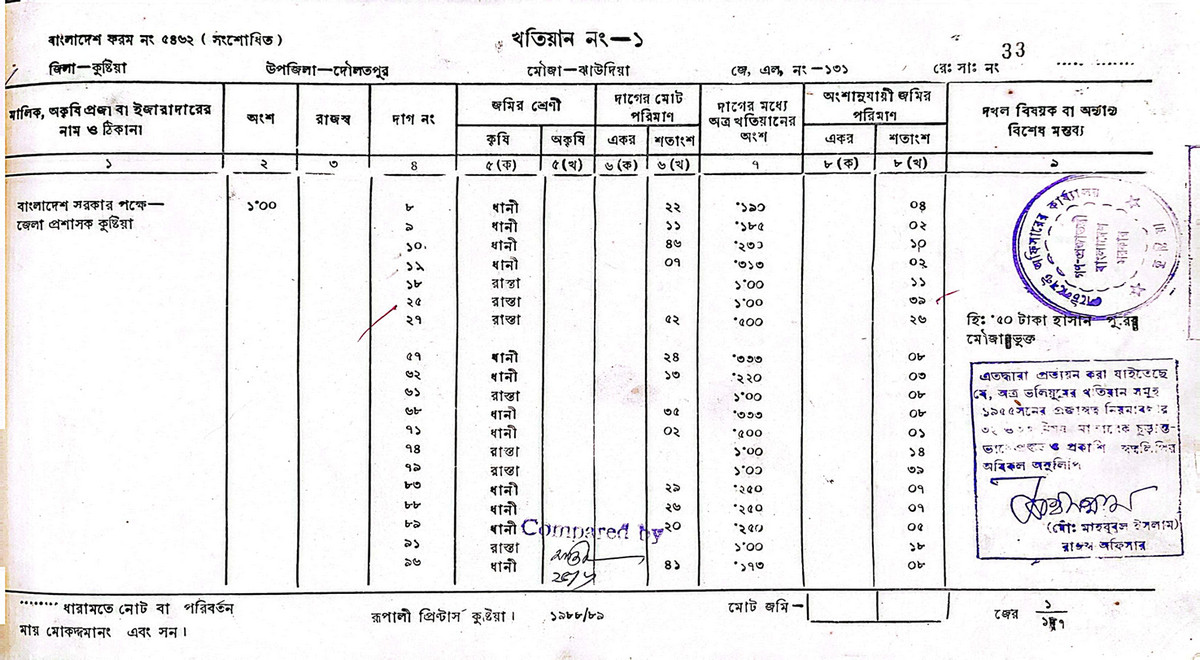 বাংলাদেশ ফরম নং ৫৪৬২ ( সংশোধিত )
খতিয়ান নং—১
33
জিলা—কুষ্টিয়া উপজিলা—দৌলতপুর মৌজা—ঝাউদিয়া জে, এল, নং —১৩১ রে: সা: নং
মালিক, অকৃষি প্রজা বা ইজারাদারের নাম ও ঠিকানা অংশ রাজস্ব দাগ নং জমির শ্রেণী দাগের মোট পরিমাণ দাগের মধ্যে অত্র খতিয়ানের অংশ অংশানুযায়ী জমির পরিমাণ দখল বিষয়ক বা অন্যান্য বিশেষ মন্তব্য
কৃষি অকৃষি একর শতাংশ একর শতাংশ
১ ২ ৩ ৪ ৫ (ক) ৫ (খ) ৬ (ক) ৬ (খ) ৭ ৮ (ক) ৮ (খ) ৯
বাংলাদেশ সরকার পক্ষে— ১'০০ ৮ ধানী ২২ '১৯০ ০৪
জেলা প্রশাসক কুষ্টিয়া ৯ ধানী ১১ '১৮৫ ০২
১০ ধানী ৪৬ '২৩০ ১০
১১ ধানী ০৭ '৩১৩ ০২
১৮ রাস্তা ১'০০ ১১
২৫ রাস্তা ১'০০ ৩৯
২৭ রাস্তা ৫২ '৫০০ ২৬
হি: '৫০ টাকা হাসান
মৌজাভুক্ত
৫৭ ধানী ২৪ '৩৩৩ ০৮
৬২ ধানী ১৩ '২২০ ০৩
৬১ রাস্তা ১'০০ ০৮
৬৮ ধানী ৩৫ '৩৩৩ ০৮
৭১ ধানী ০২ '৫০০ ০১
৭৪ রাস্তা ১'০০ ১৪
৭৯ রাস্তা ১'০০ ৩৯
৮৩ ধানী ২৯ '২৫০ ০৭
৮৮ ধানী ২৬ '২৫০ ০৭
৮৯ ধানী ২০ '২৫০ ০৫
৯১ রাস্তা ১'০০ ১৮
৯৬ ধানী ৪১ '১৭৩ ০৮
Compared by
গণ-প্রজাতন্ত্রী
বাংলাদেশ
সরকার
এতদ্বারা প্রত্যয়ন করা যাইতেছে
যে, অত্র ভলিয়ুমের খতিয়ান সমূহ
১৯৫৫সনের প্রজাস্বত্ব
ও প্রকাশি
অবিকল অনুলিপি
(মৌ: মাহবুবল ইসলাম)
রাজস্ব অফিসার
ধারামতে নোট বা পরিবর্তন রূপালী প্রিন্টার্স কুষ্টিয়া । ১৯৮৮/৮৯ মোট জমি — জের ১
মায় মোকদ্দমানং এবং সন ।